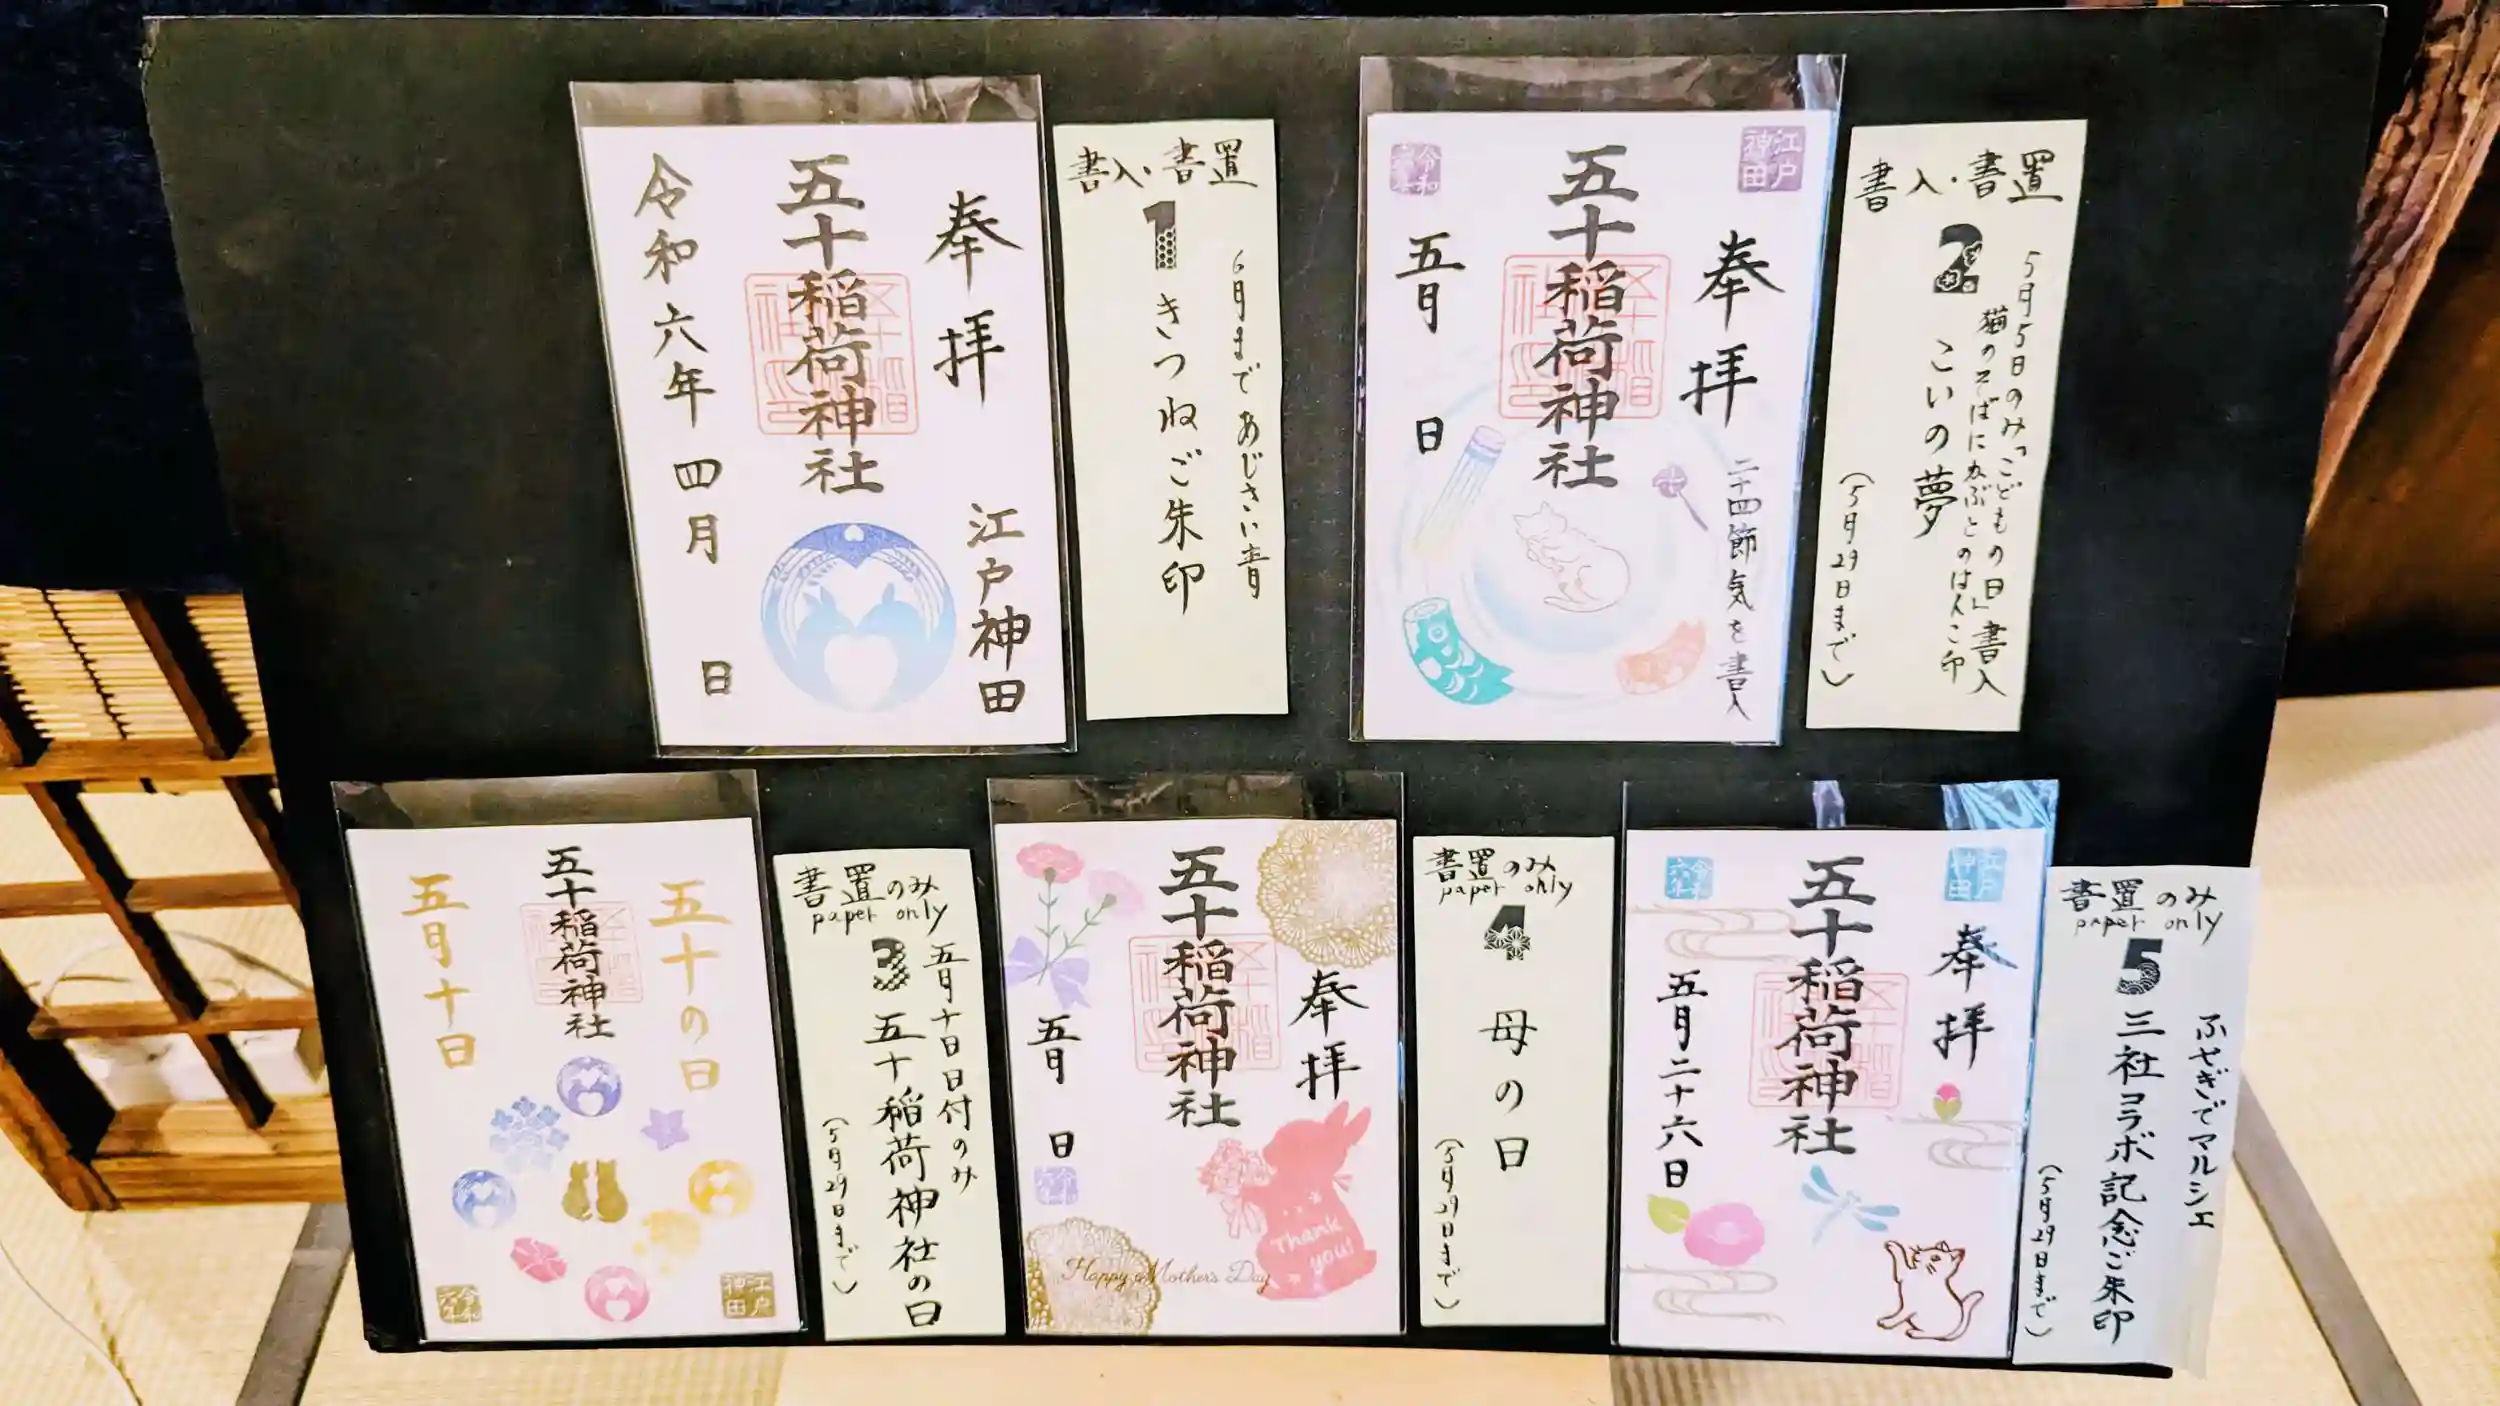 奉拝
江戸神田
五十稲荷神社
令和六年 四月 日
書入・書置
1
6月まであじさい青
きつねご朱印
江戸神田
奉拝
二十四節気を書入
五十稲荷神社
令和六年
五月 日
書入・書置
2
5月5日のみ「こどもの日」書入
猫のそばにかぶとのはんこ印
こいの夢
(5月29日まで)
五十の日
五十稲荷神社
五月十日
江戸神田
令和六年
書置のみ
paper only
3
五月十日日付のみ
五十稲荷神社の日
(5月29日まで)
奉拝
五十稲荷神社
五月 日
令和六年
Thank you!
Happy Mother's Day
書置のみ
paper only
4
母の日
(5月29日まで)
江戸神田
奉拝
五十稲荷神社
令和六年
五月二十六日
書置のみ
paper only
5
ふせぎでマルシェ
三社コラボ記念ご朱印
(5月29日まで)